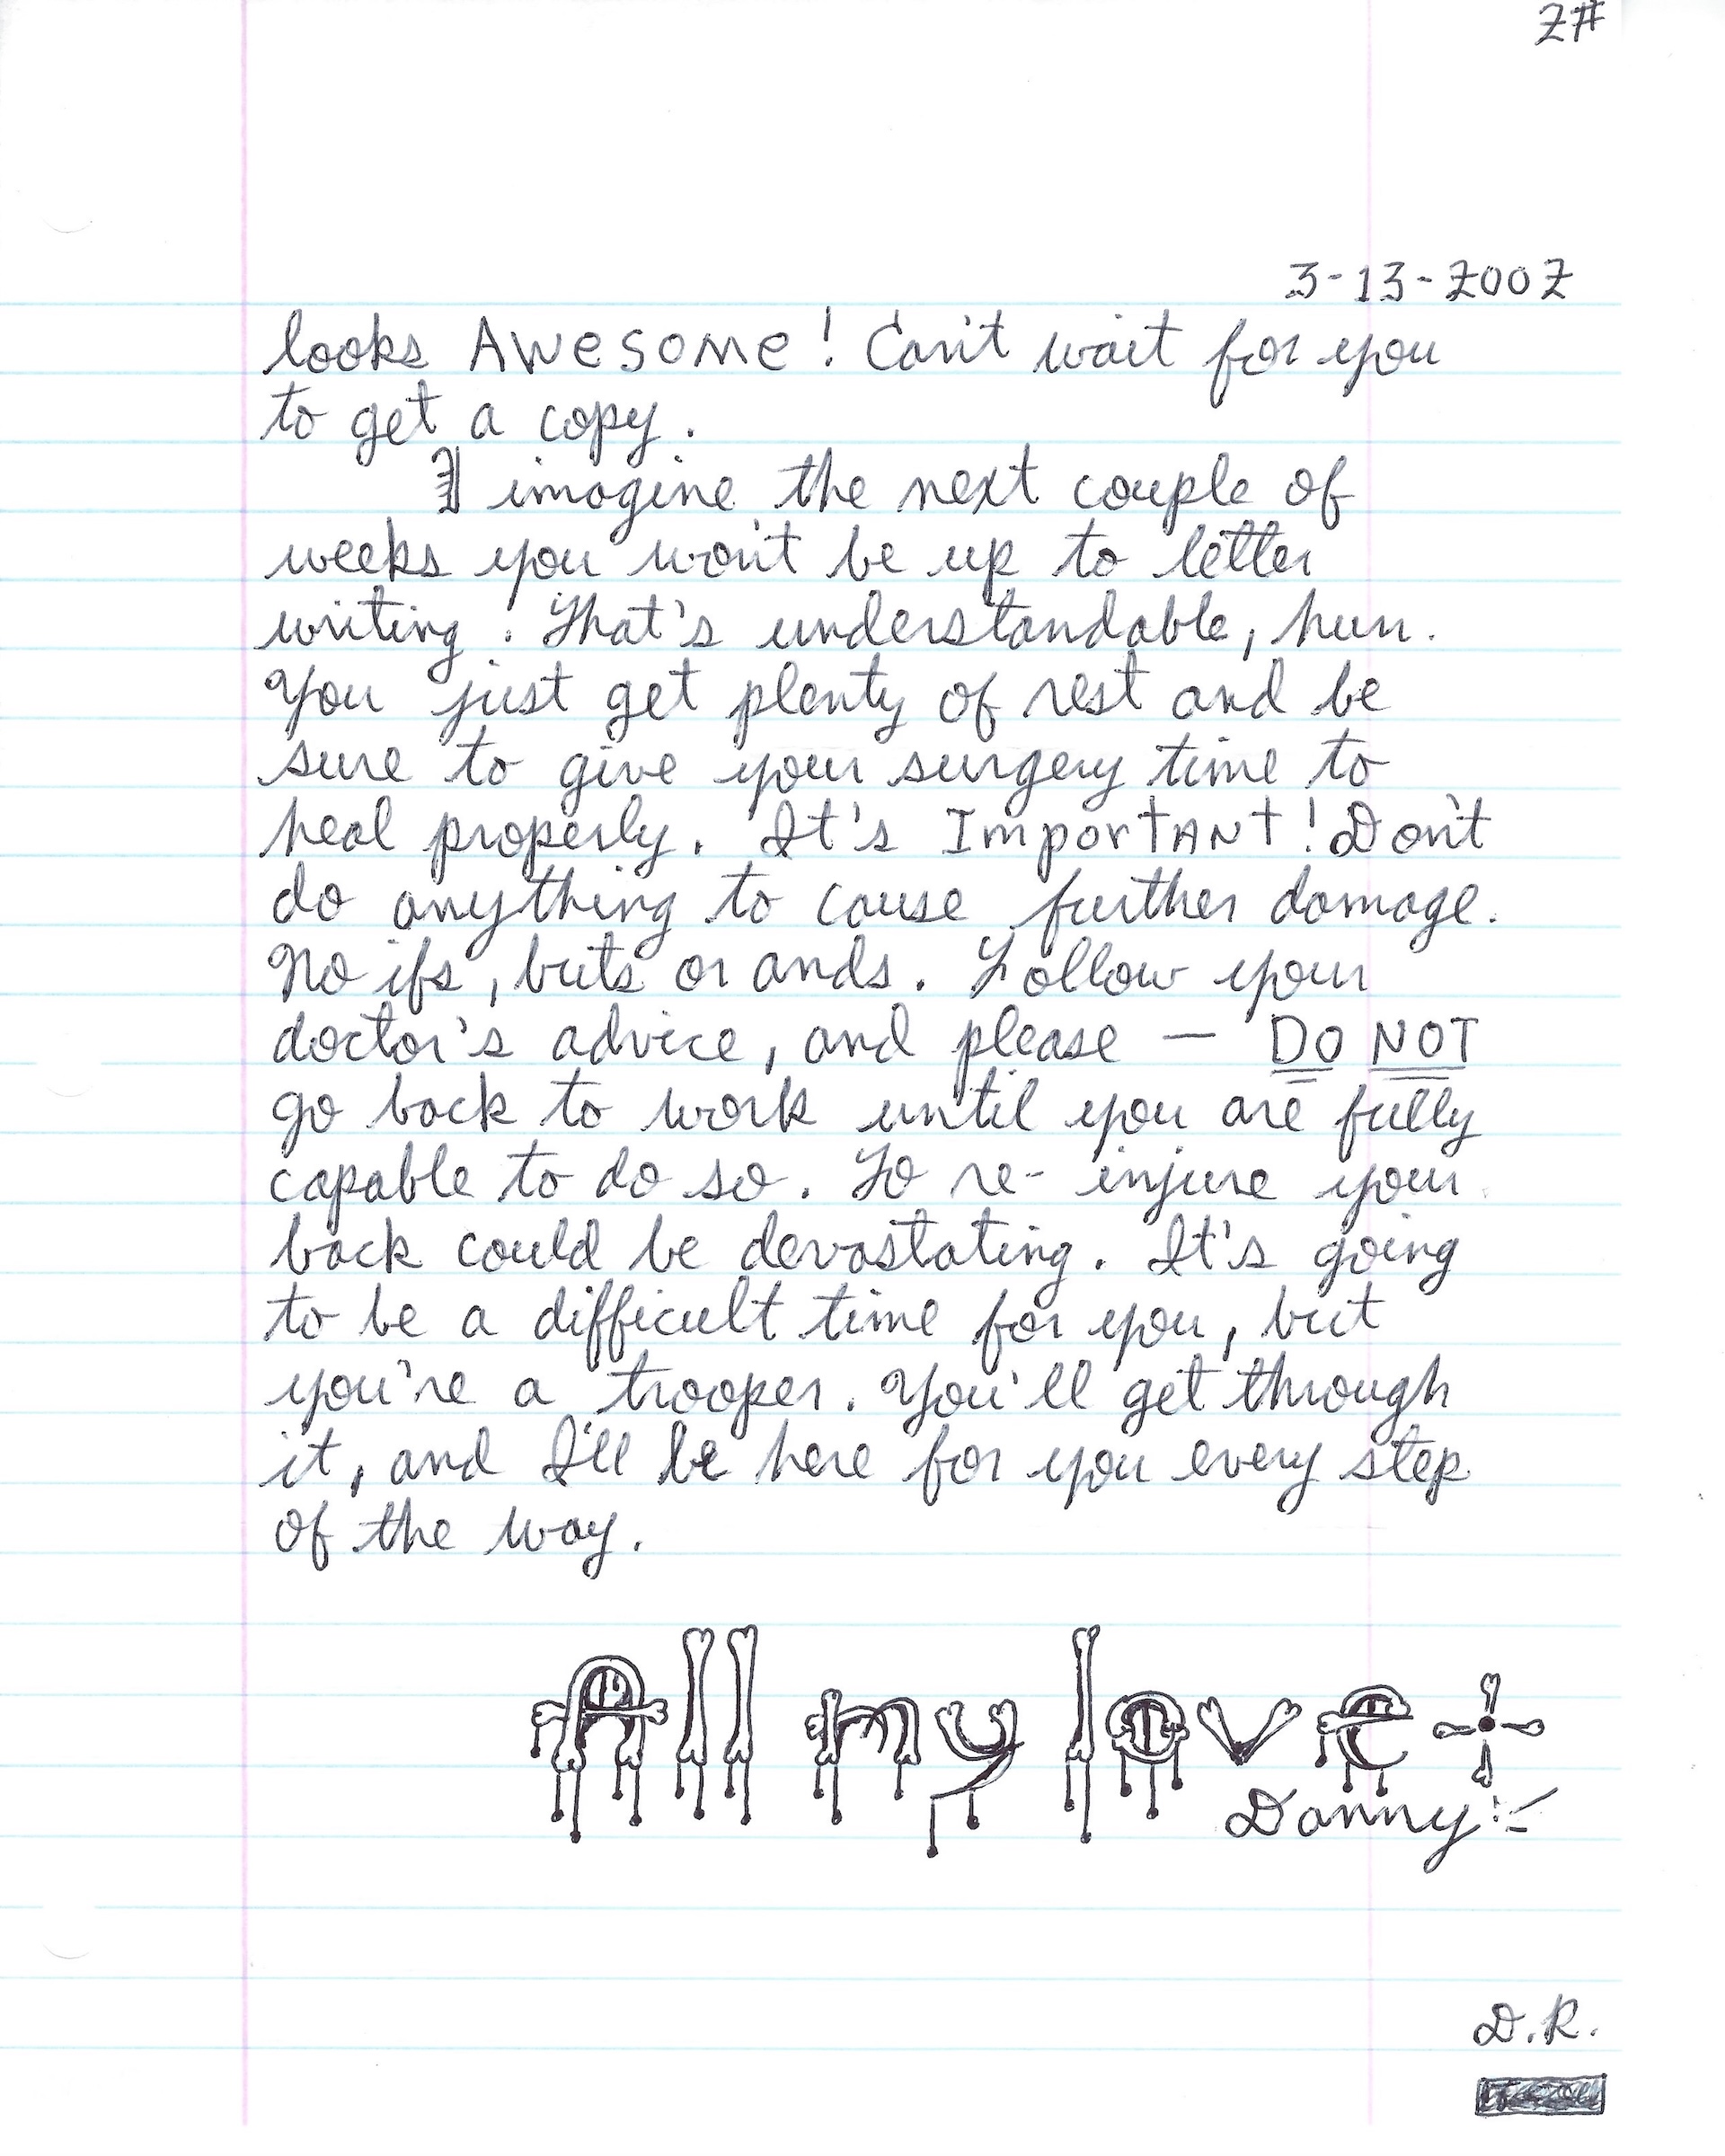 2#
3-13-2002
looks AWESOME! Can't wait for you
to get a copy.
I imagine the next couple of
weeks you won't be up to letter
writing. That's understandable, hun.
You just get plenty of rest and be
sure to give your surgery time to
heal properly. It's ImporTANT! Don't
do anything to cause further damage.
No ifs, buts or ands. Follow your
doctor's advice, and please — DO NOT
go back to work until you are fully
capable to do so. To re-injure your
back could be devastating. It's going
to be a difficult time for you, but
you're a trooper. You'll get through
it, and I'll be here for you every step
of the way.
All my love
Danny
D.R.